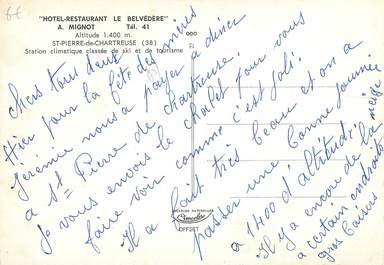 6€
"HOTEL-RESTAURANT LE BELVÉDÈRE"
A. MIGNOT Tél. 41
Altitude 1.400 m.
ST-PIERRE-de-CHARTREUSE (38)
Station climatique classée de ski et de tourisme
Chers tous deux
Hier pour la fête des mères
Jérémie nous a payer a diner
a St Pierre de Chartreuse.
Je vous envois le chalet pour vous
faire voir comme c'est joli.
Il a fait très beau et on a
passer une bonne journée
a 1400 d'altitude.
Il y a encore de la neige
a certain endroits
gros baisers
Cimcolor
OFFSET